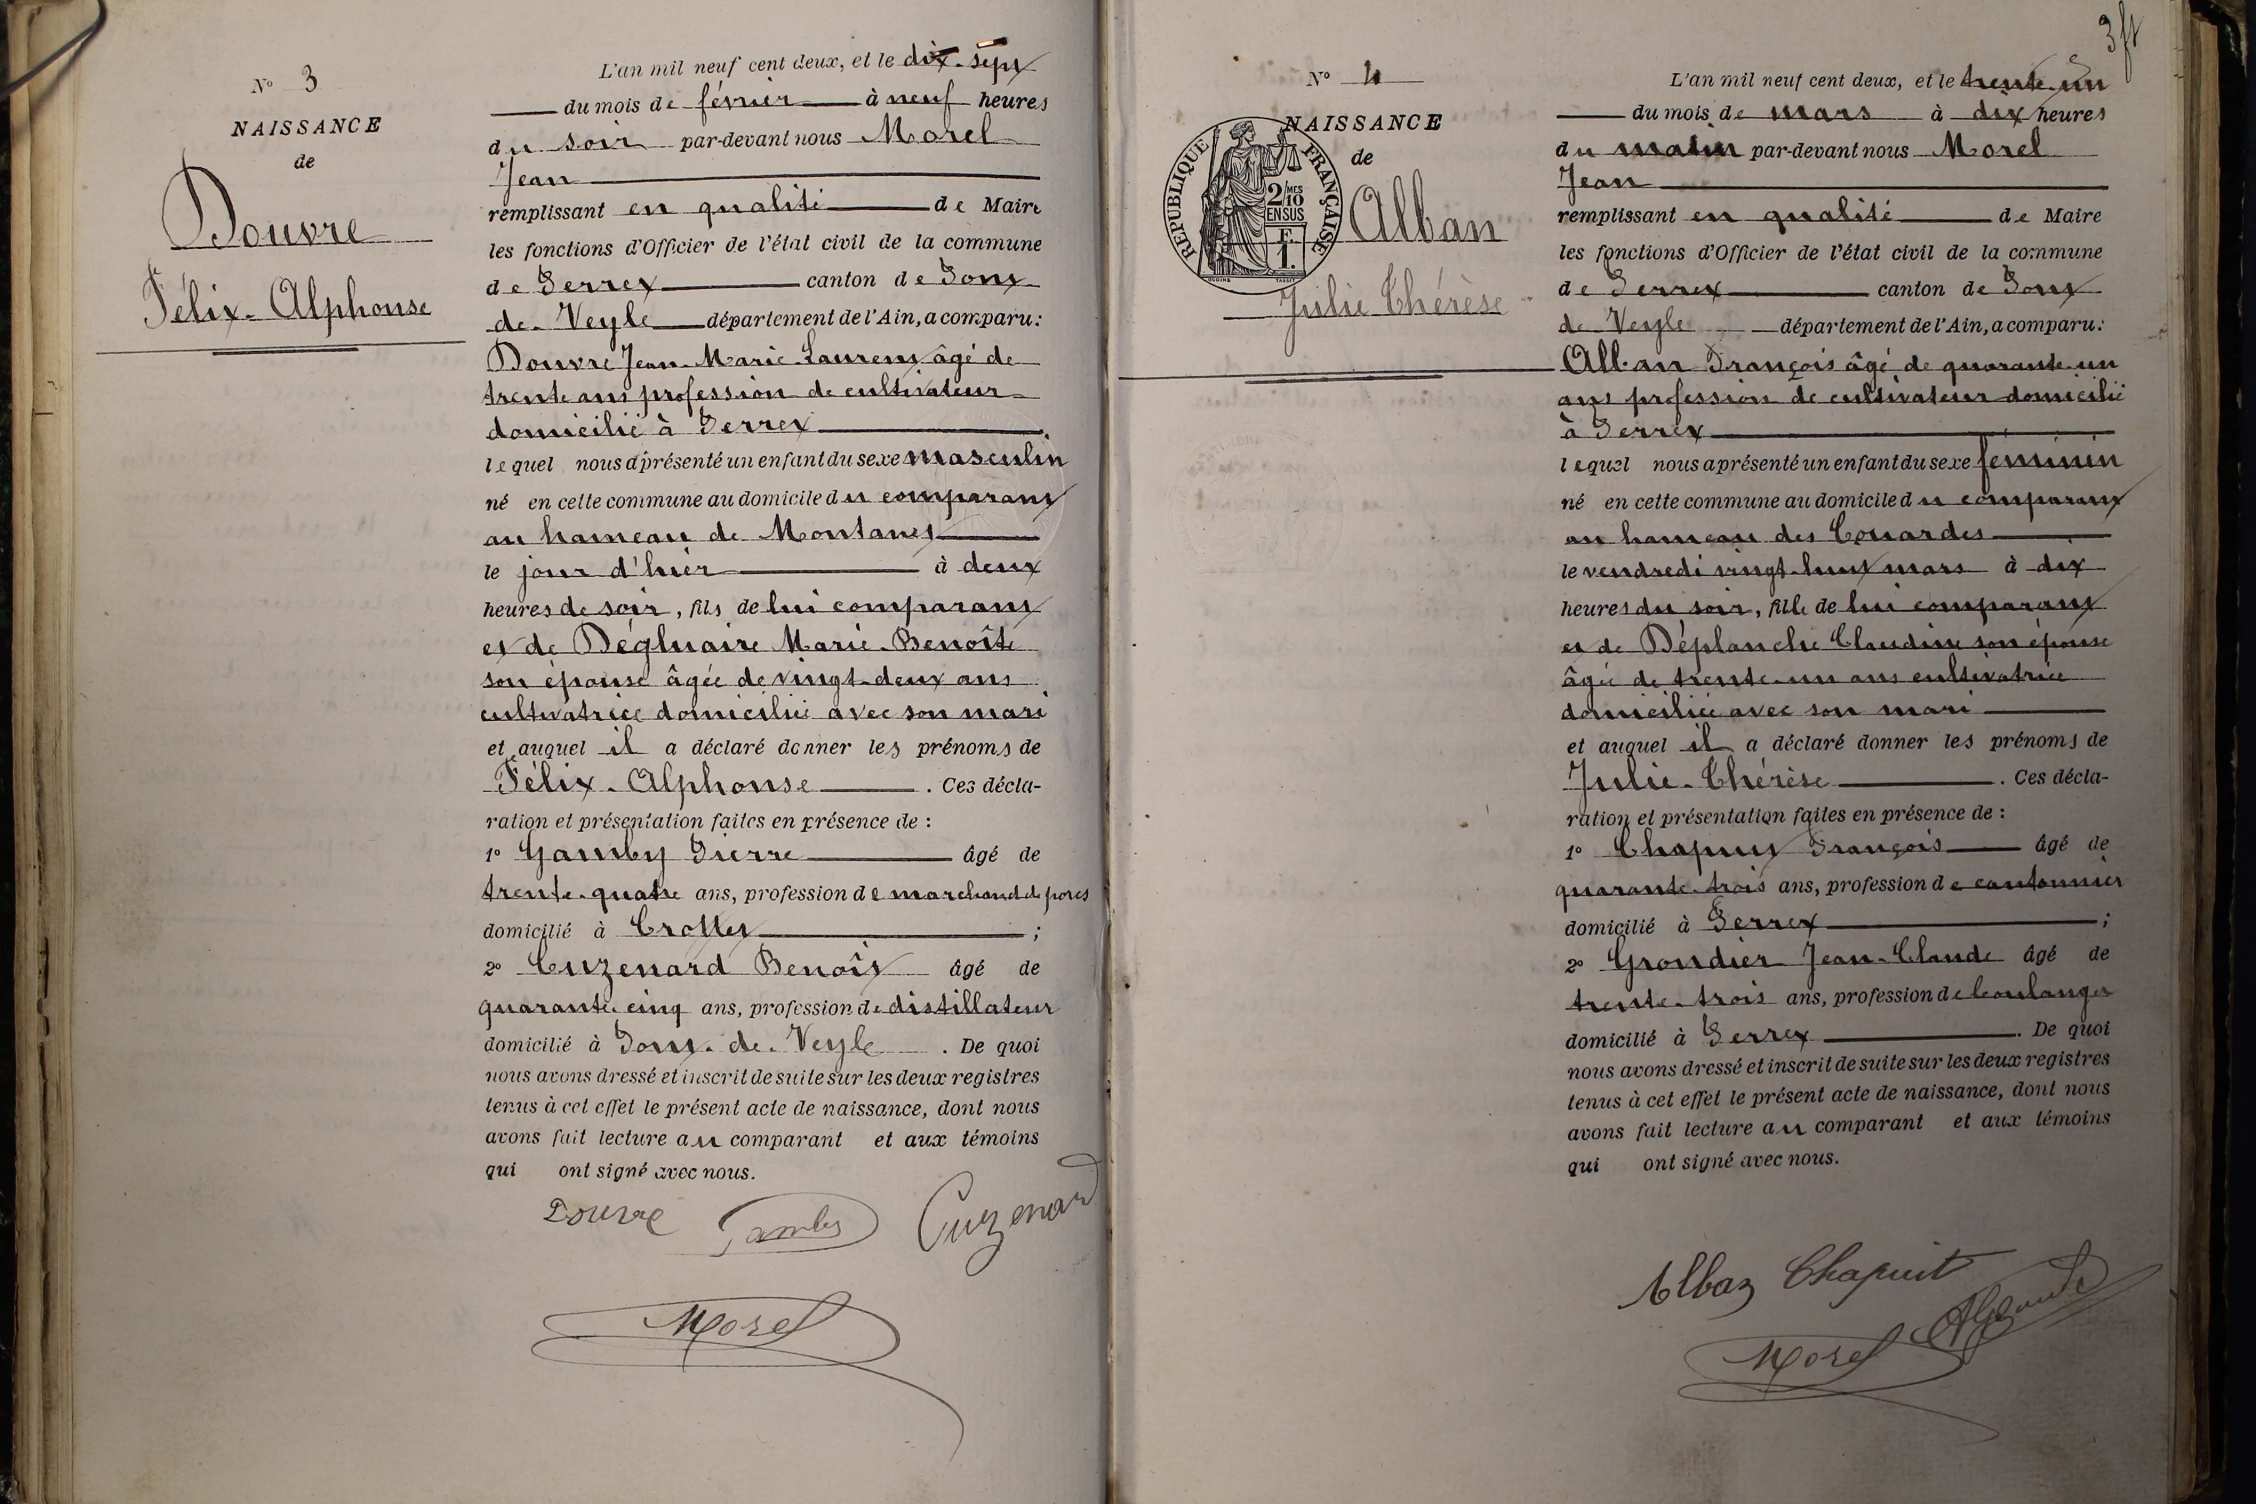 N° 3
NAISSANCE
de
Douvre
Félix-Alphonse
L'an mil neuf cent deux, et le dix-sept
du mois de février à neuf heures
du soir par-devant nous Morel
Jean
remplissant en qualité de Maire
les fonctions d'Officier de l'état civil de la commune
de Perrex canton de Pont
de-Veyle département de l'Ain, a comparu:
Douvre Jean-Marie-Laurent âgé de
trente ans profession de cultivateur
domicilié à Perrex
lequel nous a présenté un enfant du sexe masculin
né en cette commune au domicile du comparant
au hameau de Montanet
le jour d'hier à deux
heures de soir, fils de lui comparant
et de Degluaire Marie-Benoîte
son épouse âgée de vingt-deux ans
cultivatrice domiciliée avec son mari
et auquel il a déclaré donner les prénoms de
Félix-Alphonse . Ces décla-
ration et présentation faites en présence de :
1° Gamby Pierre âgé de
trente-quatre ans, profession de marchand de porcs
domicilié à Crottet ;
2° Cuzenard Benoît âgé de
quarante-cinq ans, profession de distillateur
domicilié à Pont-de-Veyle . De quoi
nous avons dressé et inscrit de suite sur les deux registres
tenus à cet effet le présent acte de naissance, dont nous
avons fait lecture au comparant et aux témoins
qui ont signé avec nous.
Douvre Gamby Cuzenard
Morel
3
N° 4
NAISSANCE
de
REPUBLIQUE FRANÇAISE
2/10 MES
EN SUS
F.
1.
Alban
Julie Thérèse
L'an mil neuf cent deux, et le trente-un
du mois de mars à dix heures
du matin par-devant nous Morel
Jean
remplissant en qualité de Maire
les fonctions d'Officier de l'état civil de la commune
de Perrex canton de Pont
de Veyle département de l'Ain, a comparu:
Alban François âgé de quarante-un
ans profession de cultivateur domicilié
à Perrex
lequel nous a présenté un enfant du sexe féminin
né en cette commune au domicile du comparant
au hameau des Couardes
le vendredi vingt-huit mars à dix
heures du soir, fille de lui comparant
et de Déplanche Claudine son épouse
âgée de trente-un ans cultivatrice
domiciliée avec son mari
et auquel il a déclaré donner les prénoms de
Julie-Thérèse . Ces décla-
ration et présentation faites en présence de :
1° Chapuit François âgé de
quarante-trois ans, profession de cantonnier
domicilié à Perrex ;
2° Grondier Jean-Claude âgé de
trente-trois ans, profession de boulanger
domicilié à Perrex . De quoi
nous avons dressé et inscrit de suite sur les deux registres
tenus à cet effet le présent acte de naissance, dont nous
avons fait lecture au comparant et aux témoins
qui ont signé avec nous.
Alban Chapuit
Morel